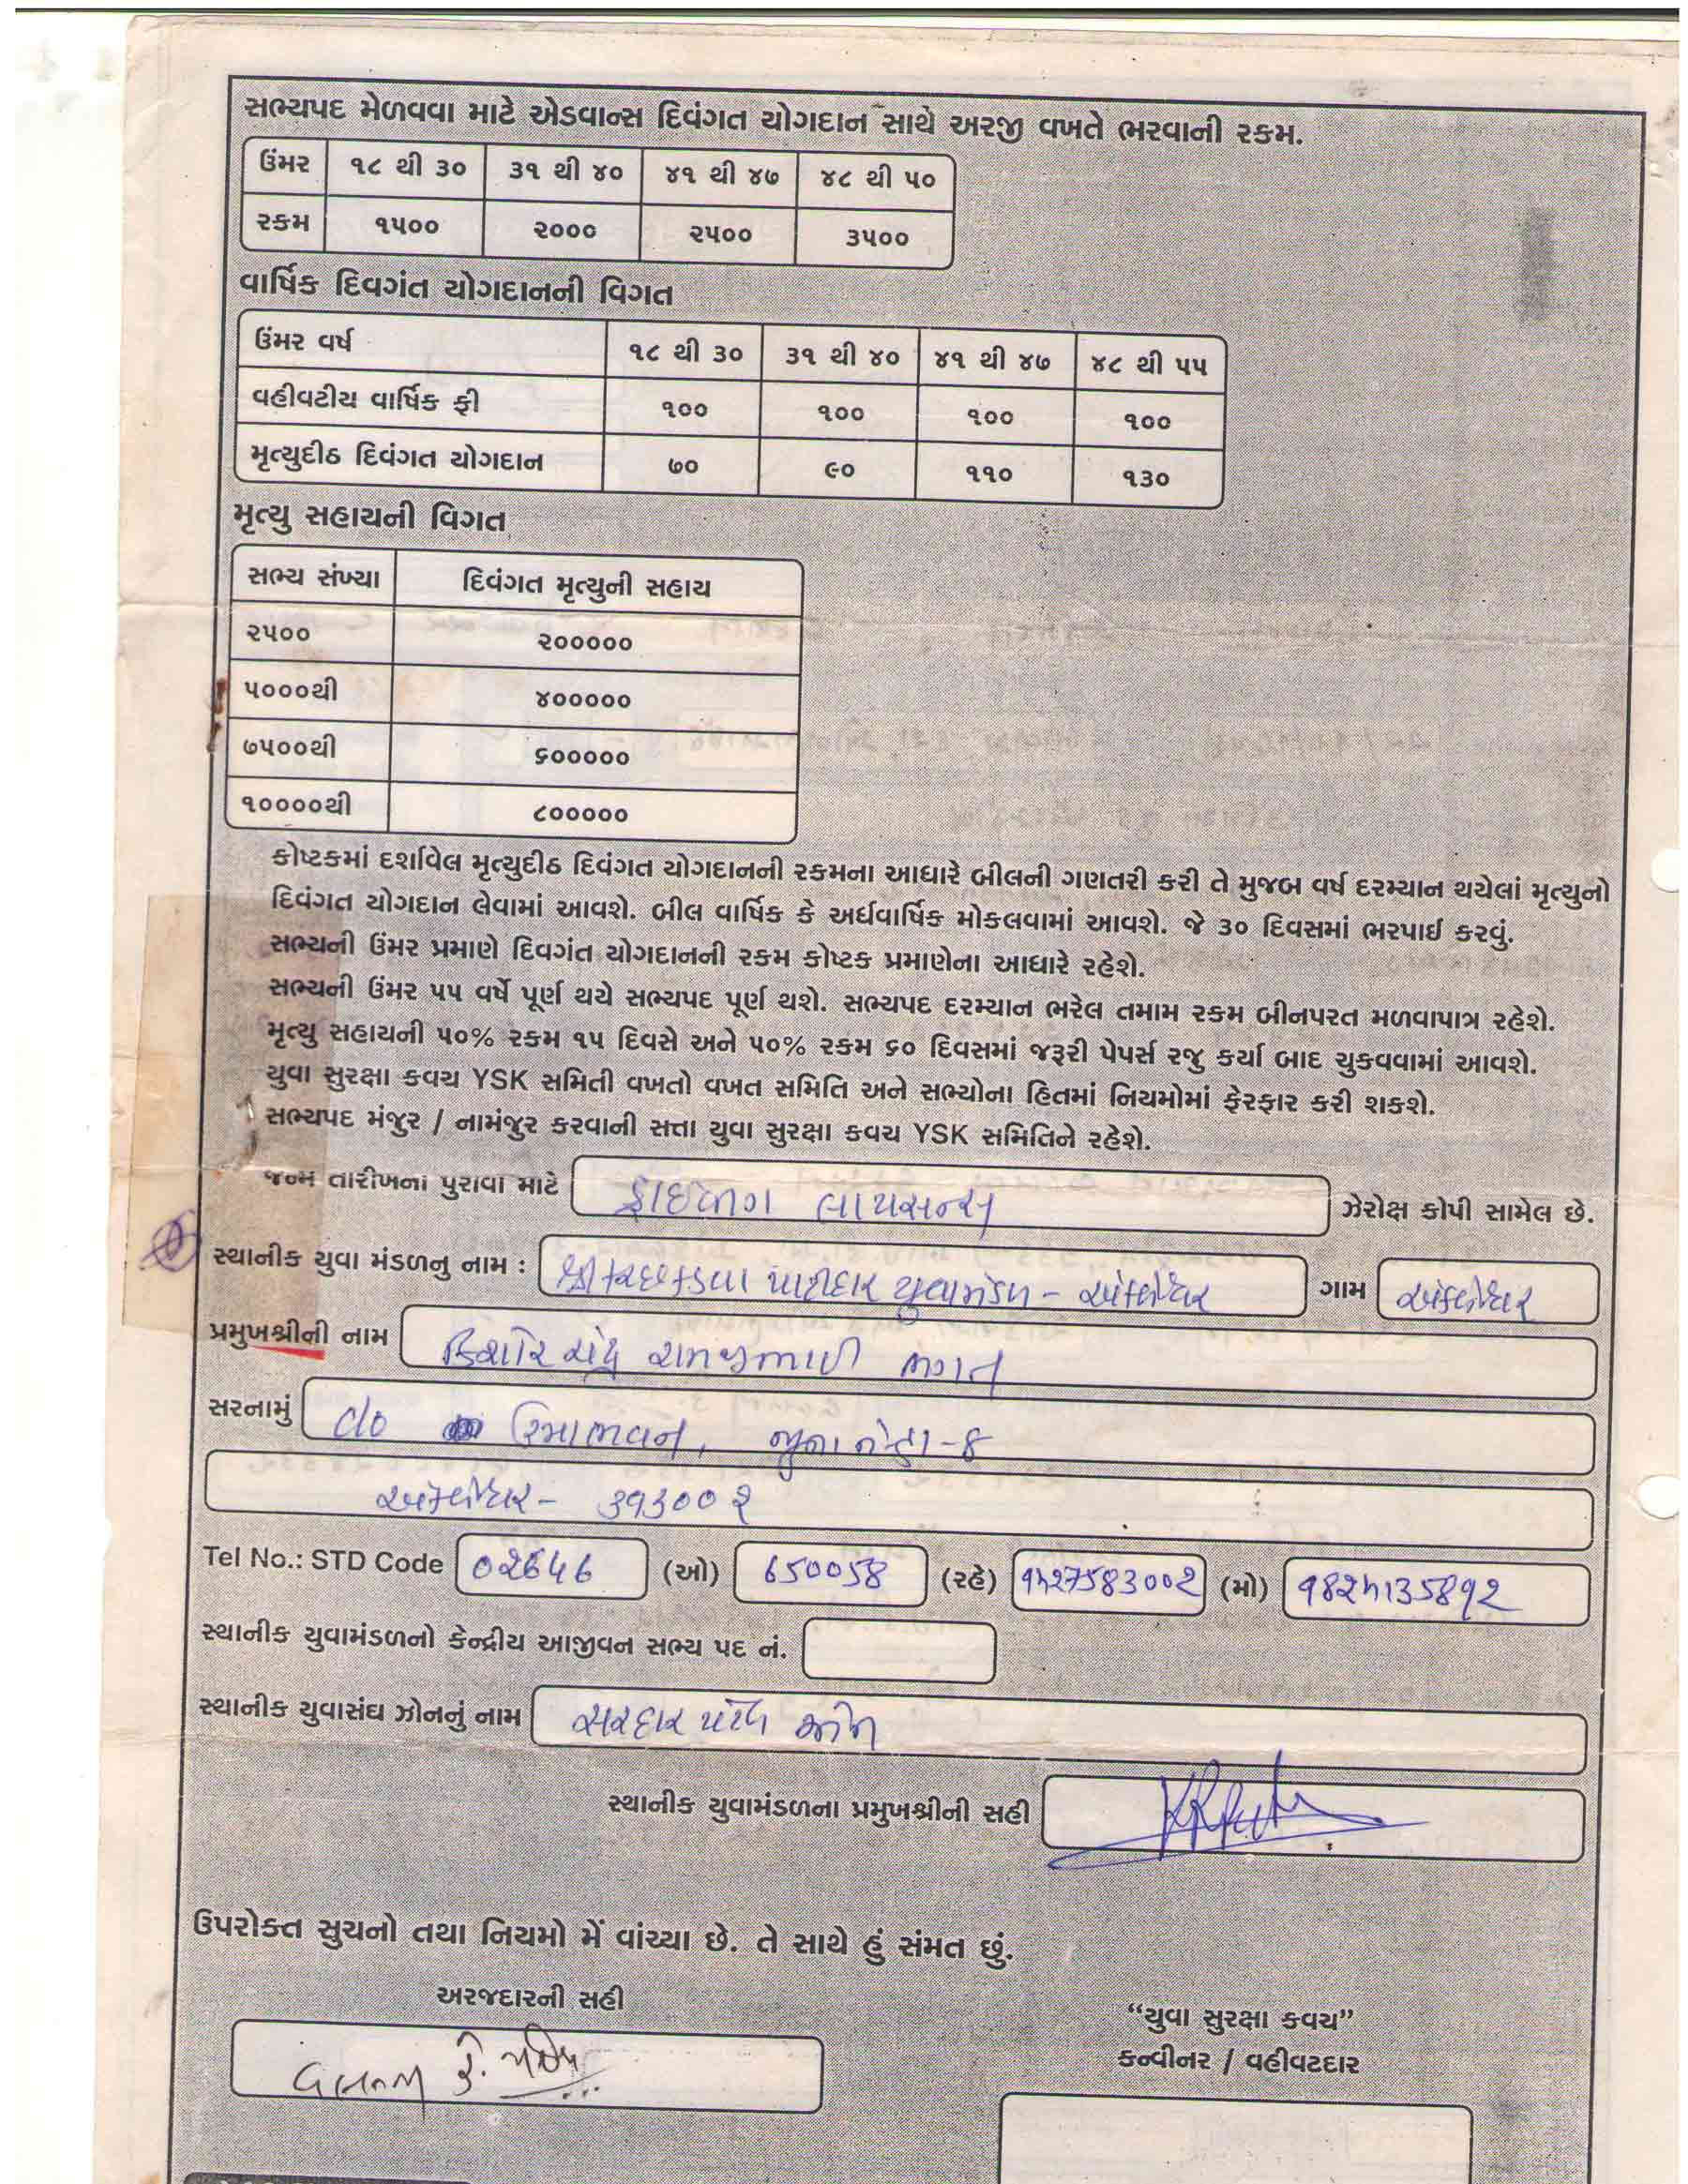 સભ્યપદ મેળવવા માટે એડવાન્સ દિવંગત યોગદાન સાથે અરજી વખતે ભરવાની રકમ.
ઉંમર ૧૮ થી ૩૦ ૩૧ થી ૪૦ ૪૧ થી ૪૭ ૪૮ થી ૫૦
રકમ ૧૫૦૦ ૨૦૦૦ ૨૫૦૦ ૩૫૦૦
વાર્ષિક દિવગંત યોગદાનની વિગત
ઉંમર વર્ષ ૧૮ થી ૩૦ ૩૧ થી ૪૦ ૪૧ થી ૪૭ ૪૮ થી ૫૫
વહીવટીય વાર્ષિક ફી ૧૦૦ ૧૦૦ ૧૦૦ ૧૦૦
મૃત્યુદીઠ દિવંગત યોગદાન ૭૦ ૯૦ ૧૧૦ ૧૩૦
મૃત્યુ સહાયની વિગત
સભ્ય સંખ્યા દિવંગત મૃત્યુની સહાય
૨૫૦૦ ૨૦૦૦૦૦
૫૦૦૦થી ૪૦૦૦૦૦
૭૫૦૦થી ૬૦૦૦૦૦
૧૦૦૦૦થી ૮૦૦૦૦૦
કોષ્ટકમાં દર્શાવેલ મૃત્યુદીઠ દિવંગત યોગદાનની રકમના આધારે બીલની ગણતરી કરી તે મુજબ વર્ષ દરમ્યાન થયેલાં મૃત્યુનો
દિવંગત યોગદાન લેવામાં આવશે. બીલ વાર્ષિક કે અર્ધવાર્ષિક મોકલવામાં આવશે. જે ૩૦ દિવસમાં ભરપાઈ કરવું.
સભ્યની ઉંમર પ્રમાણે દિવગંત યોગદાનની રકમ કોષ્ટક પ્રમાણેના આધારે રહેશે.
સભ્યની ઉંમર ૫૫ વર્ષે પૂર્ણ થયે સભ્યપદ પૂર્ણ થશે. સભ્યપદ દરમ્યાન ભરેલ તમામ રકમ બીનપરત મળવાપાત્ર રહેશે.
મૃત્યુ સહાયની ૫૦% રકમ ૧૫ દિવસે અને ૫૦% રકમ ૬૦ દિવસમાં જરૂરી પેપર્સ રજુ કર્યા બાદ ચુકવવામાં આવશે.
યુવા સુરક્ષા કવચ YSK સમિતી વખતો વખત સમિતિ અને સભ્યોના હિતમાં નિયમોમાં ફેરફાર કરી શકશે.
સભ્યપદ મંજુર / નામંજુર કરવાની સત્તા યુવા સુરક્ષા કવચ YSK સમિતિને રહેશે.
જન્મ તારીખના પુરાવા માટે ડ્રાઇવીંગ લાયસન્સ ઝેરોક્ષ કોપી સામેલ છે.
સ્થાનીક યુવા મંડળનુ નામ : શ્રી કચ્છ કડવા પાટીદાર યુવામંડળ - અંકલેશ્વર ગામ અંકલેશ્વર
પ્રમુખશ્રીની નામ કિશોરચંદ્ર રામજીભાઈ ભગત
સરનામું c/o ઉમાભવન, જુના નેહા-8
અંકલેશ્વર - ૩૧૩૦૦૨
Tel No.: STD Code 02646 (ઓ) 650058 (રહે) ૧૫27583002 (મો) 982૫135892
સ્થાનીક યુવામંડળનો કેન્દ્રીય આજીવન સભ્ય પદ નં.
સ્થાનીક યુવાસંઘ ઝોનનું નામ સરદાર પટેલ ઝોન
સ્થાનીક યુવામંડળના પ્રમુખશ્રીની સહી
ઉપરોક્ત સુચનો તથા નિયમો મેં વાંચ્યા છે. તે સાથે હું સંમત છું.
અરજદારની સહી
“યુવા સુરક્ષા કવચ”
કન્વીનર / વહીવટદાર